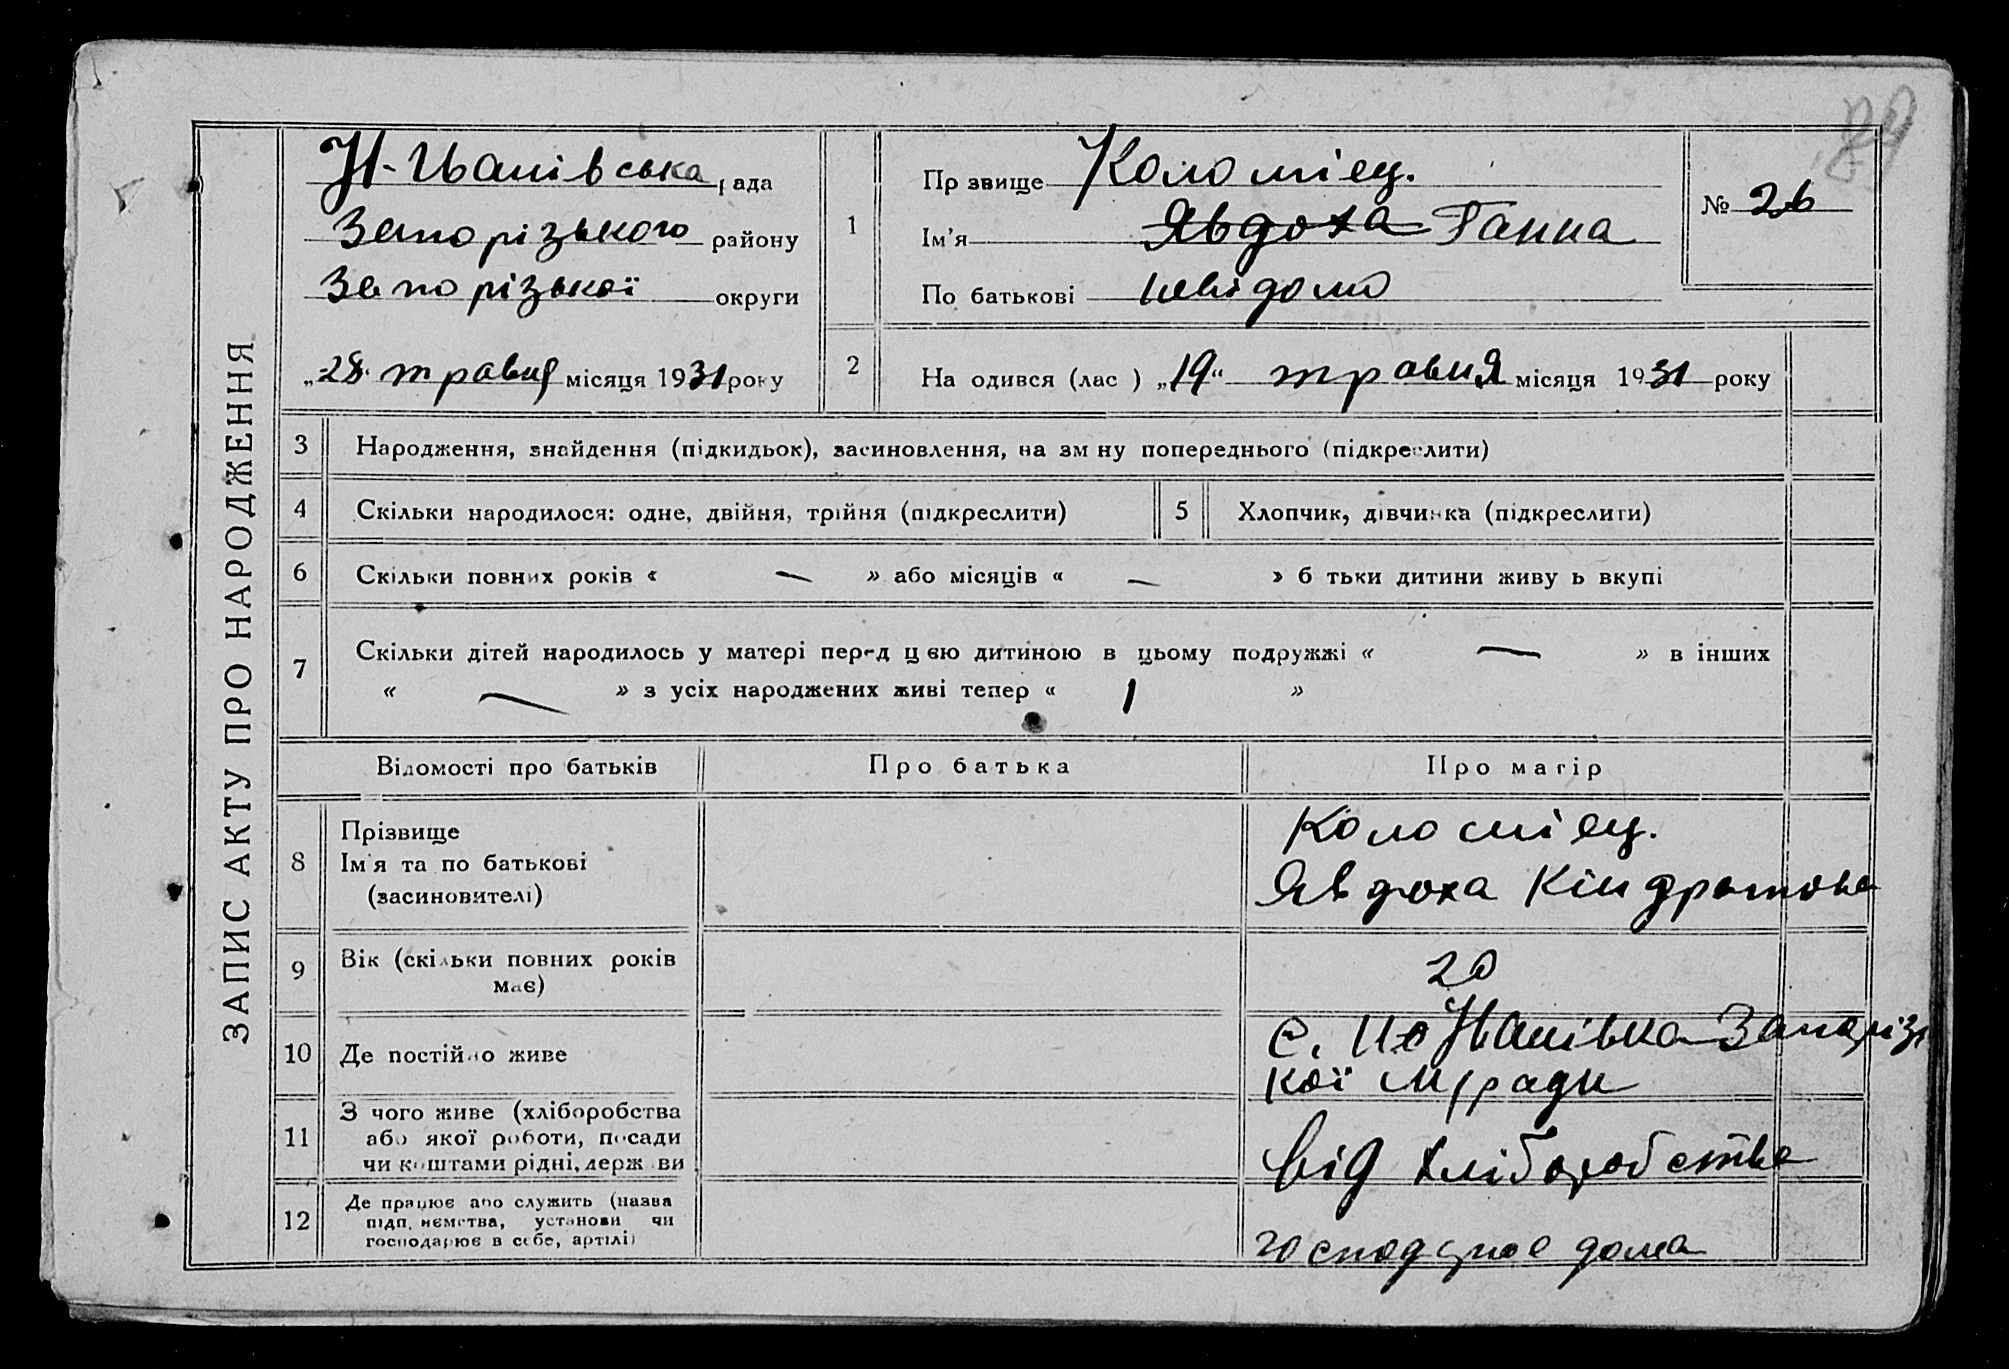 89
ЗАПИС АКТУ ПРО НАРОДЖЕННЯ
Н-Іванівська рада
Запорізького району
Запорізької округи
„28“ травня місяця 1931 року
1
Пр звище Коломієц.
Ім’я Явдоха Ганна
По батькові невідомо
№ 26
2
На одився (лас ) „19“ травня місяця 1931 року
3 Народження, знайдення (підкидьок), засиновлення, на зм ну попереднього (підкреслити)
4 Скільки народилося: одне, двійня, трійня (підкреслити) 5 Хлопчик, дівчинка (підкреслити)
6 Скільки повних років « — » або місяців « — » б тьки дитини живу ь вкупі
7 Скільки дітей народилось у матері перед цією дитиною в цьому подружжі « — » в інших
« — » з усіх народжених живі тепер « 1 »
Відомості про батьків Про батька Про матір
8 Прізвище
Ім’я та по батькові
(засиновителі)
Коломієц.
Явдоха Кіндратова
9 Вік (скільки повних років
має)
20
10 Де постійно живе
с. Н-Іванівка Запоріз
кої м/ради
11 З чого живе (хліборобства
або якої роботи, посади
чи коштами рідні, держави
від хліборобства
12 Де працює або служить (назва
підп. иємства, установи чи
господарює в себе, артілі)
господарює дома